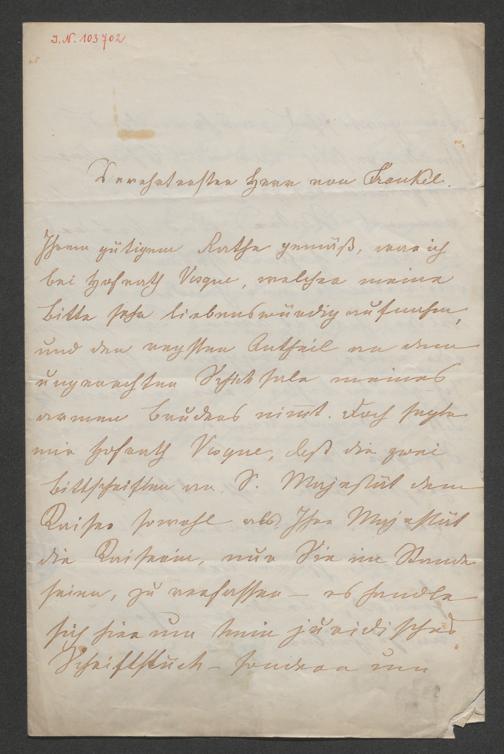 J. N. 103702
Verehrtester Herr von Frankl.
Ihrem gütigem Rathe gemäß, war ich
bei Hofrath Vesque, welcher meine
Bitte sehr liebenswürdig aufnahm,
und den regsten Antheil an dem
ungerechten Schicksale meines
armen Bruders nimt. Doch sagte
mir Hofrath Vesque, daß die zwei
Bittschriften an S. Majestät dem
Kaiser sowohl als Ihre Majestät
die Kaiserin, nur Sie im Stande
seien, zu verfassen – es handle
sich hier um kein juridisches
Schriftstück – sondern um